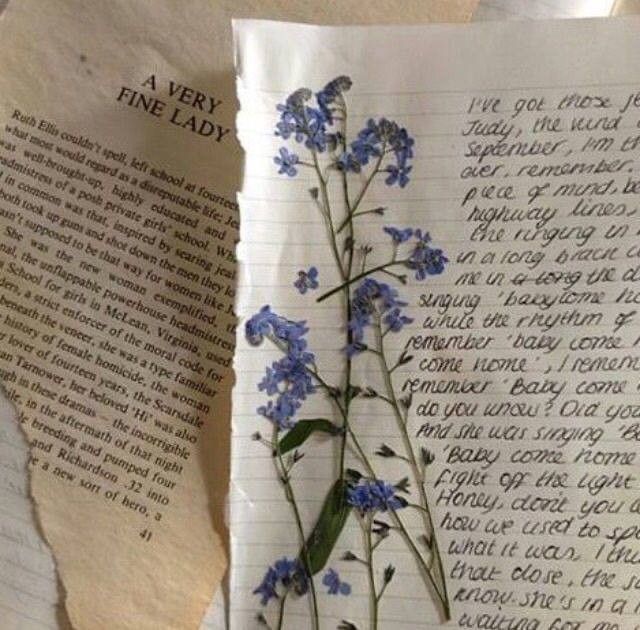 A VERY
FINE LADY
Ruth Ellis couldn't spell, left school at fourteen
what most would regard as a disreputable life; Je
was well-brought-up, highly educated and
admistress of a posh private girls' school. Wh
in common was that, inspired by searing jeal
both took up guns and shot down the men they l
asn't supposed to be that way for women like
She was the new woman exemplified,
nal, the unflappable powerhouse headmistre
School for girls in McLean, Virginia, used
ders, a strict enforcer of the moral code for
beneath the veneer, she was a type familiar
history of female homicide, the woman
r lover of fourteen years, the Scarsdale
an Tarnower, her beloved 'Hi' was also
h in these dramas — the incorrigible
le, in the aftermath of that night
breeding and pumped four
and Richardson .32 into
e a new sort of hero, a
41
I've got those je
Judy, the wind
September, I'm th
over, remember.
piece of mind, be
highway lines.
the ringing in
in a long black c
me in a long the d
singing 'baby come ho
while the rhythm of
remember 'baby come h
come home', I remem
remember 'Baby come
do you know? Did you
And she was singing 'B
'Baby come home
fight off the light
Honey, don't you
how we used to spe
what it was, I thi
that close, the s
know. she's in a
waiting for me